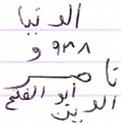 الدنيا
٩٣٨ و
ناصر
أبو الفتح
الدين